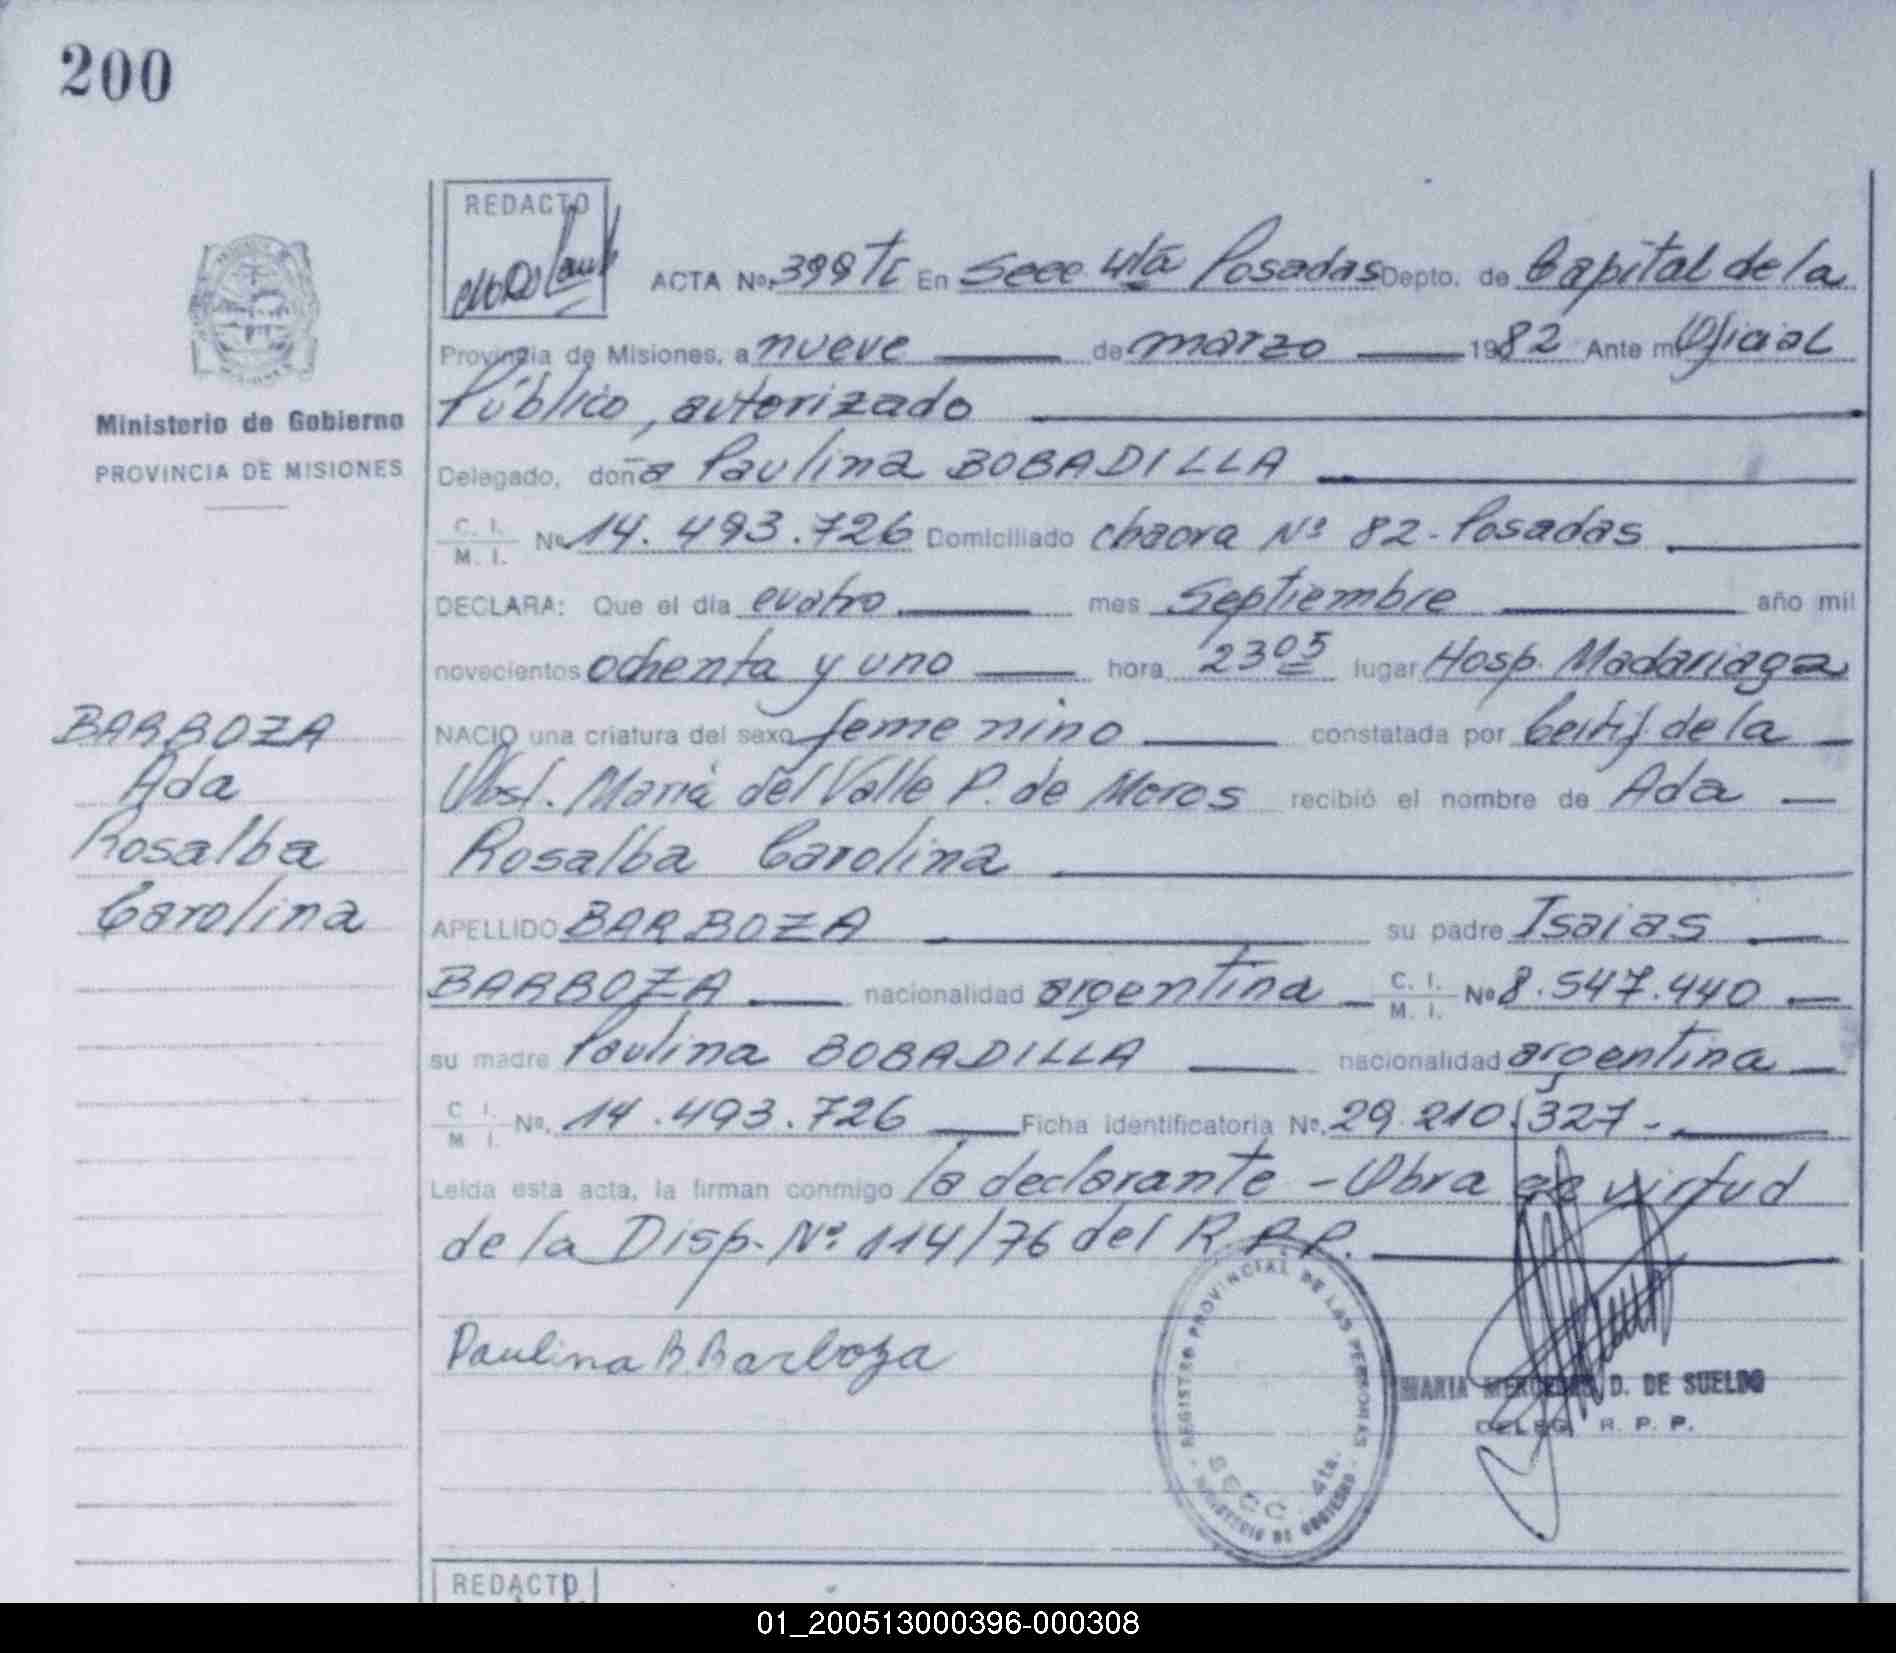 200
REDACTO
ACTA No. 399 Tc En Secc 4ta Posadas Depto. de Capital de la
Provincia de Misiones, a nueve de marzo 1982 Ante mi Oficial
Público, autorizado
Ministerio de Gobierno
PROVINCIA DE MISIONES
Delegado, doña Paulina BOBADILLA
C. I. M. I. No. 14.493.726 Domiciliado chacra Nº 82 - Posadas
DECLARA: Que el día cuatro mes septiembre año mil
novecientos ochenta y uno hora 23 05 lugar Hosp. Madariaga
BARBOZA
Ada
Rosalba
Carolina
NACIO una criatura del sexo femenino constatada por Certif de la
Obst. María del Valle P. de Moros recibió el nombre de Ada
Rosalba Carolina
APELLIDO BARBOZA su padre Isaias
BARBOZA nacionalidad argentina C. I. M. I. Nº 8.547.440
su madre Paulina BOBADILLA nacionalidad argentina
C. I. M. I. No. 14.493.726 Ficha identificatoria No. 29.210.327.-
Leída esta acta, la firman conmigo la declarante - Obra en virtud
de la Disp. Nº 114/76 del R.P.P.
Paulina B. Barboza
REGISTRO PROVINCIAL DE LAS PERSONAS
SECC. 4ta.
MINISTERIO DE GOBIERNO
MARIA MERCEDES D. DE SUELDO
DELEG. R. P. P.
REDACTO
01_200513000396-000308